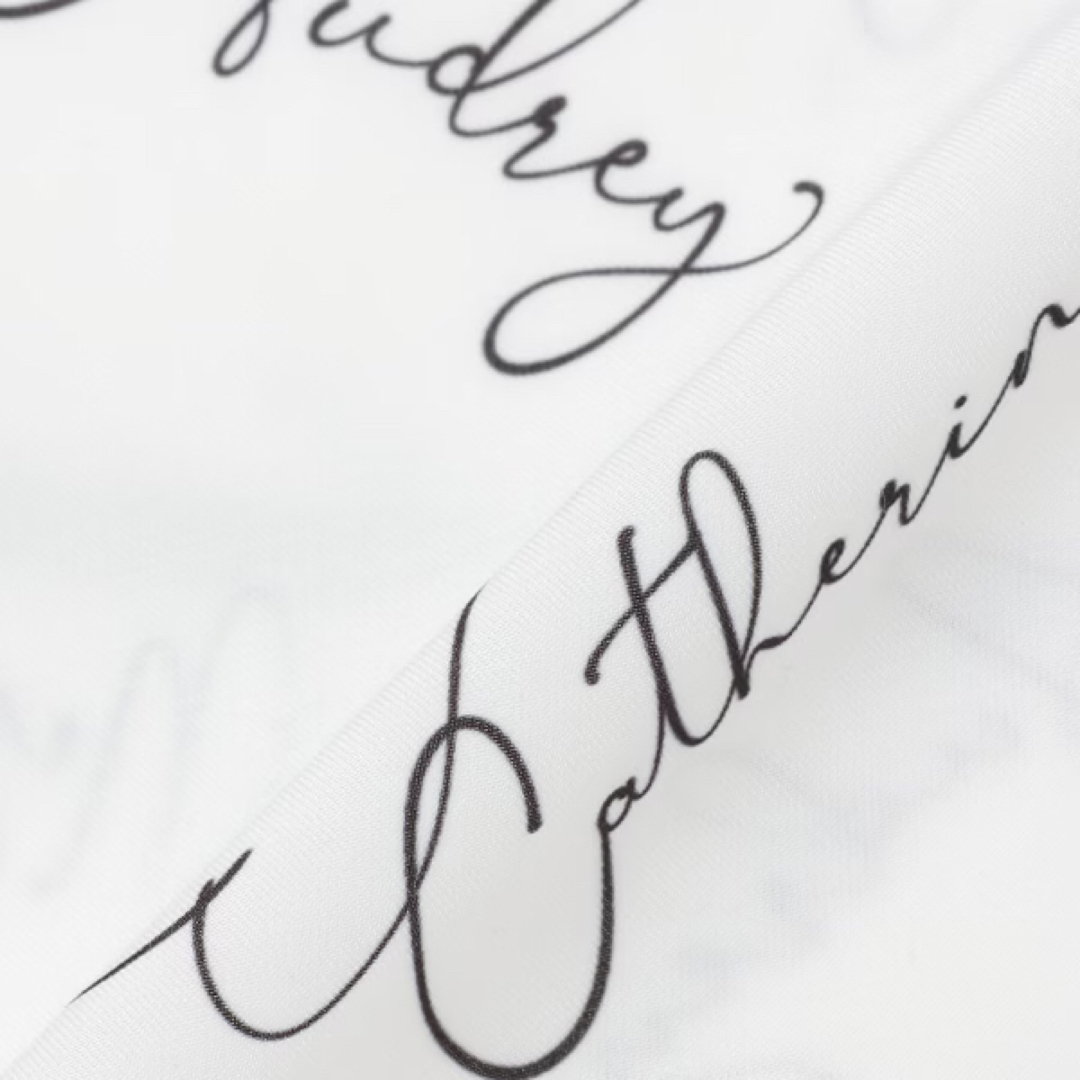 udrey
Catherin